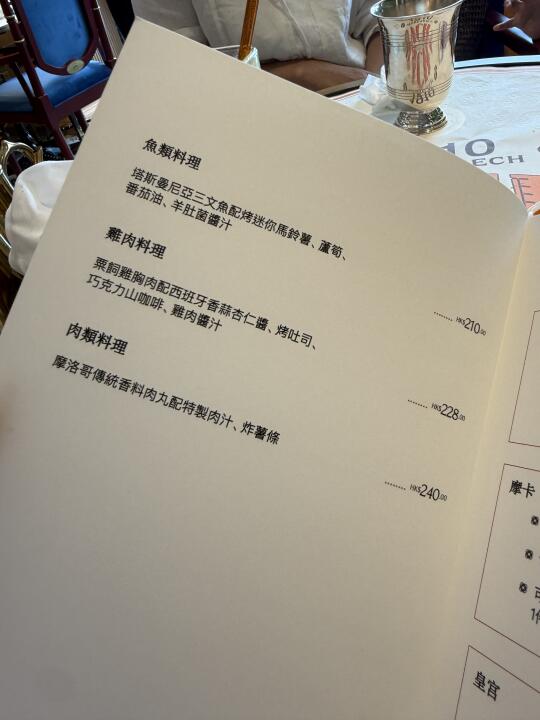 1810
HO
TECH
魚類料理
塔斯曼尼亞三文魚配烤迷你馬鈴薯、蘆筍、
番茄油、羊肚菌醬汁
........ HK$210.00
雞肉料理
粟飼雞胸肉配西班牙香蒜杏仁醬、烤吐司、
巧克力山咖啡、雞肉醬汁
........ HK$228.00
肉類料理
摩洛哥傳統香料肉丸配特製肉汁、炸薯條
........ HK$240.00
摩卡
皇宮